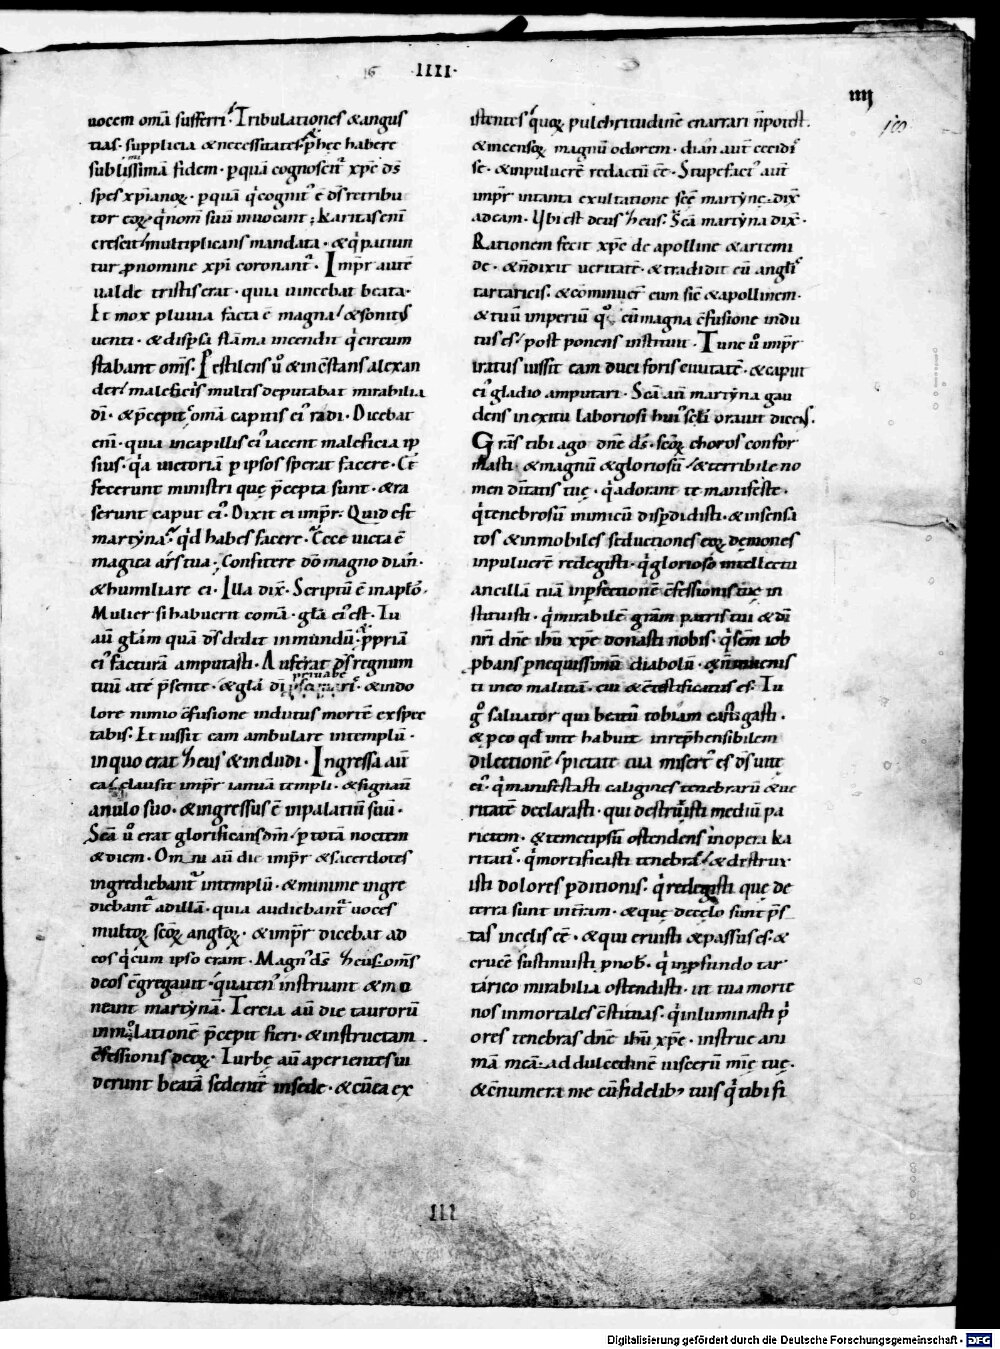 ·IIII·
IIIJ
uocem omā sufferri·Tribulationes &angus
tias·supplicia &necessitates·ꝓhęc habere
sublissimā fidem·ꝑquā cognoscit᷑ xp̄c d̄s
spes xp̄ianoꝝ·ꝑquā q̇cognit᷒ ē d̄s retribu
tor eoꝝ q̇nom̄ suū inuocant; karitas eni̅
crescit multiplicans mandata·&q̇ patiun
tur ꝓnomine xp̄i coronant᷑·Imp̄r autē
ualde tristis erat·quia uincebat beata·
Et mox pluuia facta ē magna &sonitus
uenti·&disꝑsa flāma incendit q̇ circum
stabant om̄s·Pestilens ū &incēstans alexan
der maleficiis multis deputabat mirabilia
di̅·&p̄cepit omā capitis ei᷒ radi·Dicebat
eni̅·quia incapillis ei᷒ iacent maleficia ip
sius·q̇a uictoriā ꝑ ipsos sperat facere·Et
fecerunt ministri quę p̄cepta sunt·&ra
serunt caput ei᷒·Dixit ei imp̄r·Quid est
martyna q̇d habes facere·Ecce uicta ē
magica ars tua·Confitere dō magno dian̄·
&humiliare ei·Illa dix̄·Scriptū ē inaplō·
Mulier si habuerit comā·glā ei᷒ est·Tu
aū glām quā d̄s dedit inmundū·ꝓpriā
ei᷒ facturā amputasti·Auferat d̄s regnum
tuū ate p̄sente·&glā di
&indo
lore nimio c̄fusione indutus mortē expec
tabis·Et iussit eam ambulare intemplū·
inquo erat heus &includi·Ingressa aū
ea clausit imp̄r ianuā templi·&signauit
anulo suo·&ingressus ē inpalatiū suū·
Scā ū erat glorificans dm̄ ꝑtotā noctem
&diem·Omni aū die imp̄r &sacerdotes
ingrediebant᷑ intemplū·&minime ingre
diebant᷑ adillā·quia audiebant᷑ uoces
multoꝝ scōꝝ angloꝝ·&imp̄r dicebat ad
eos q̇cum ipso erant·Magn᷒ d̄s heus om̄s
deos c̄gregauit·q̇uaten᷒ instruant &mo
neant martynā·Tercia aū die taurorū
inmolationē p̄cepit fieri·&instructam
c̄fessionis deoꝝ·Turbę aū aperientes ui
derunt beatā sedentē insede·&c̄uca ex
istentes quoꝝ pulchritudinē enarrari n̄potest·
&incensoꝝ magnū odorem·dian̄ aut̄ cecidis
se·&inpuluerē redactū ēe·Stupefact᷒ aut̄
imp̄r intanta exultatione scē martynę·dix̄
adeam·Ubi est deus heus·Scā martyna dix̄·
Rationem fecit xp̄c de apolline &artemi
de·&n̄dixit ueritatē·&tradidit eū anglis
tartaricis·&cōminuer̄ eum sic̄ &apollinem·
&tuū imperiū q̊ cū magna c̄fusione indu
tus es post ponens instruit·Tunc ū imp̄r
iratus iussit eam duci foris ciuitatē·&caput
ei᷒ gladio amputari·Scā aū martyna gau
dens inexitu laboriosi hui᷒ scli orauit dicens·
Gras̄ tibi ago dn̄e d̄s·scōꝝ choros confor
tasti·&magnū &gloriosū &terribile no
men diuitatis tuę·q̇adorant te manifeste·
q̇tenebrosū inimicū disꝑdidisti·&insensa
tos &inmobiles seductiones eoꝝ dęmones
inpuluerē redegisti·q̇glorioso intellectu
ancillā tuā inꝑfectionē c̄fessionis tuę in
stituisti·q̇mirabilē grām patris tui &di̅
nr̄i dn̄e ih̄u xp̄e donasti nobis·q̇scm̄ iob
ꝓbans ꝑnequissimū diabolū·&n̄inuenis
ti ineo malitiā·cui &c̄testificatus es·Tu
g̊ saluator qui beatū tobiam castigasti·
&ꝑeo qd̄ inte habuit inreꝓhensibilem
dilectionē pietate tua misert᷒ es d̄s uitę
ei᷒·q̇manifestasti caligines tenebrarū &ue
ritatē declarasti·qui destruxisti mediū pa
rietem·&temetipsū ostendens inopera ka
ritatis·q̇mortificasti tenebras &destrux
isti dolores ꝑditionis·q̇redegisti quę de
terra sunt interram·&quę decęlo sunt p̄s
tas incęlis ēe·&qui eruisti &passus es·&
crucē sustinuisti ꝓnob·q̇ inꝓfundo tar
tárico mirabilia ostendisti·ut tua morte
nos inmortales c̄stituas·q̇inluminasti p̄
ores tenebras dn̄e ih̄u xp̄e·instrue ani
mā meā·addulcedinē uiscerū mīę tuę·
&c̄numera me cū fidelib; tuis q̇ tibi fi
III
Digitalisierung gefördert durch die Deutsche Forschungsgemeinschaft - DFG